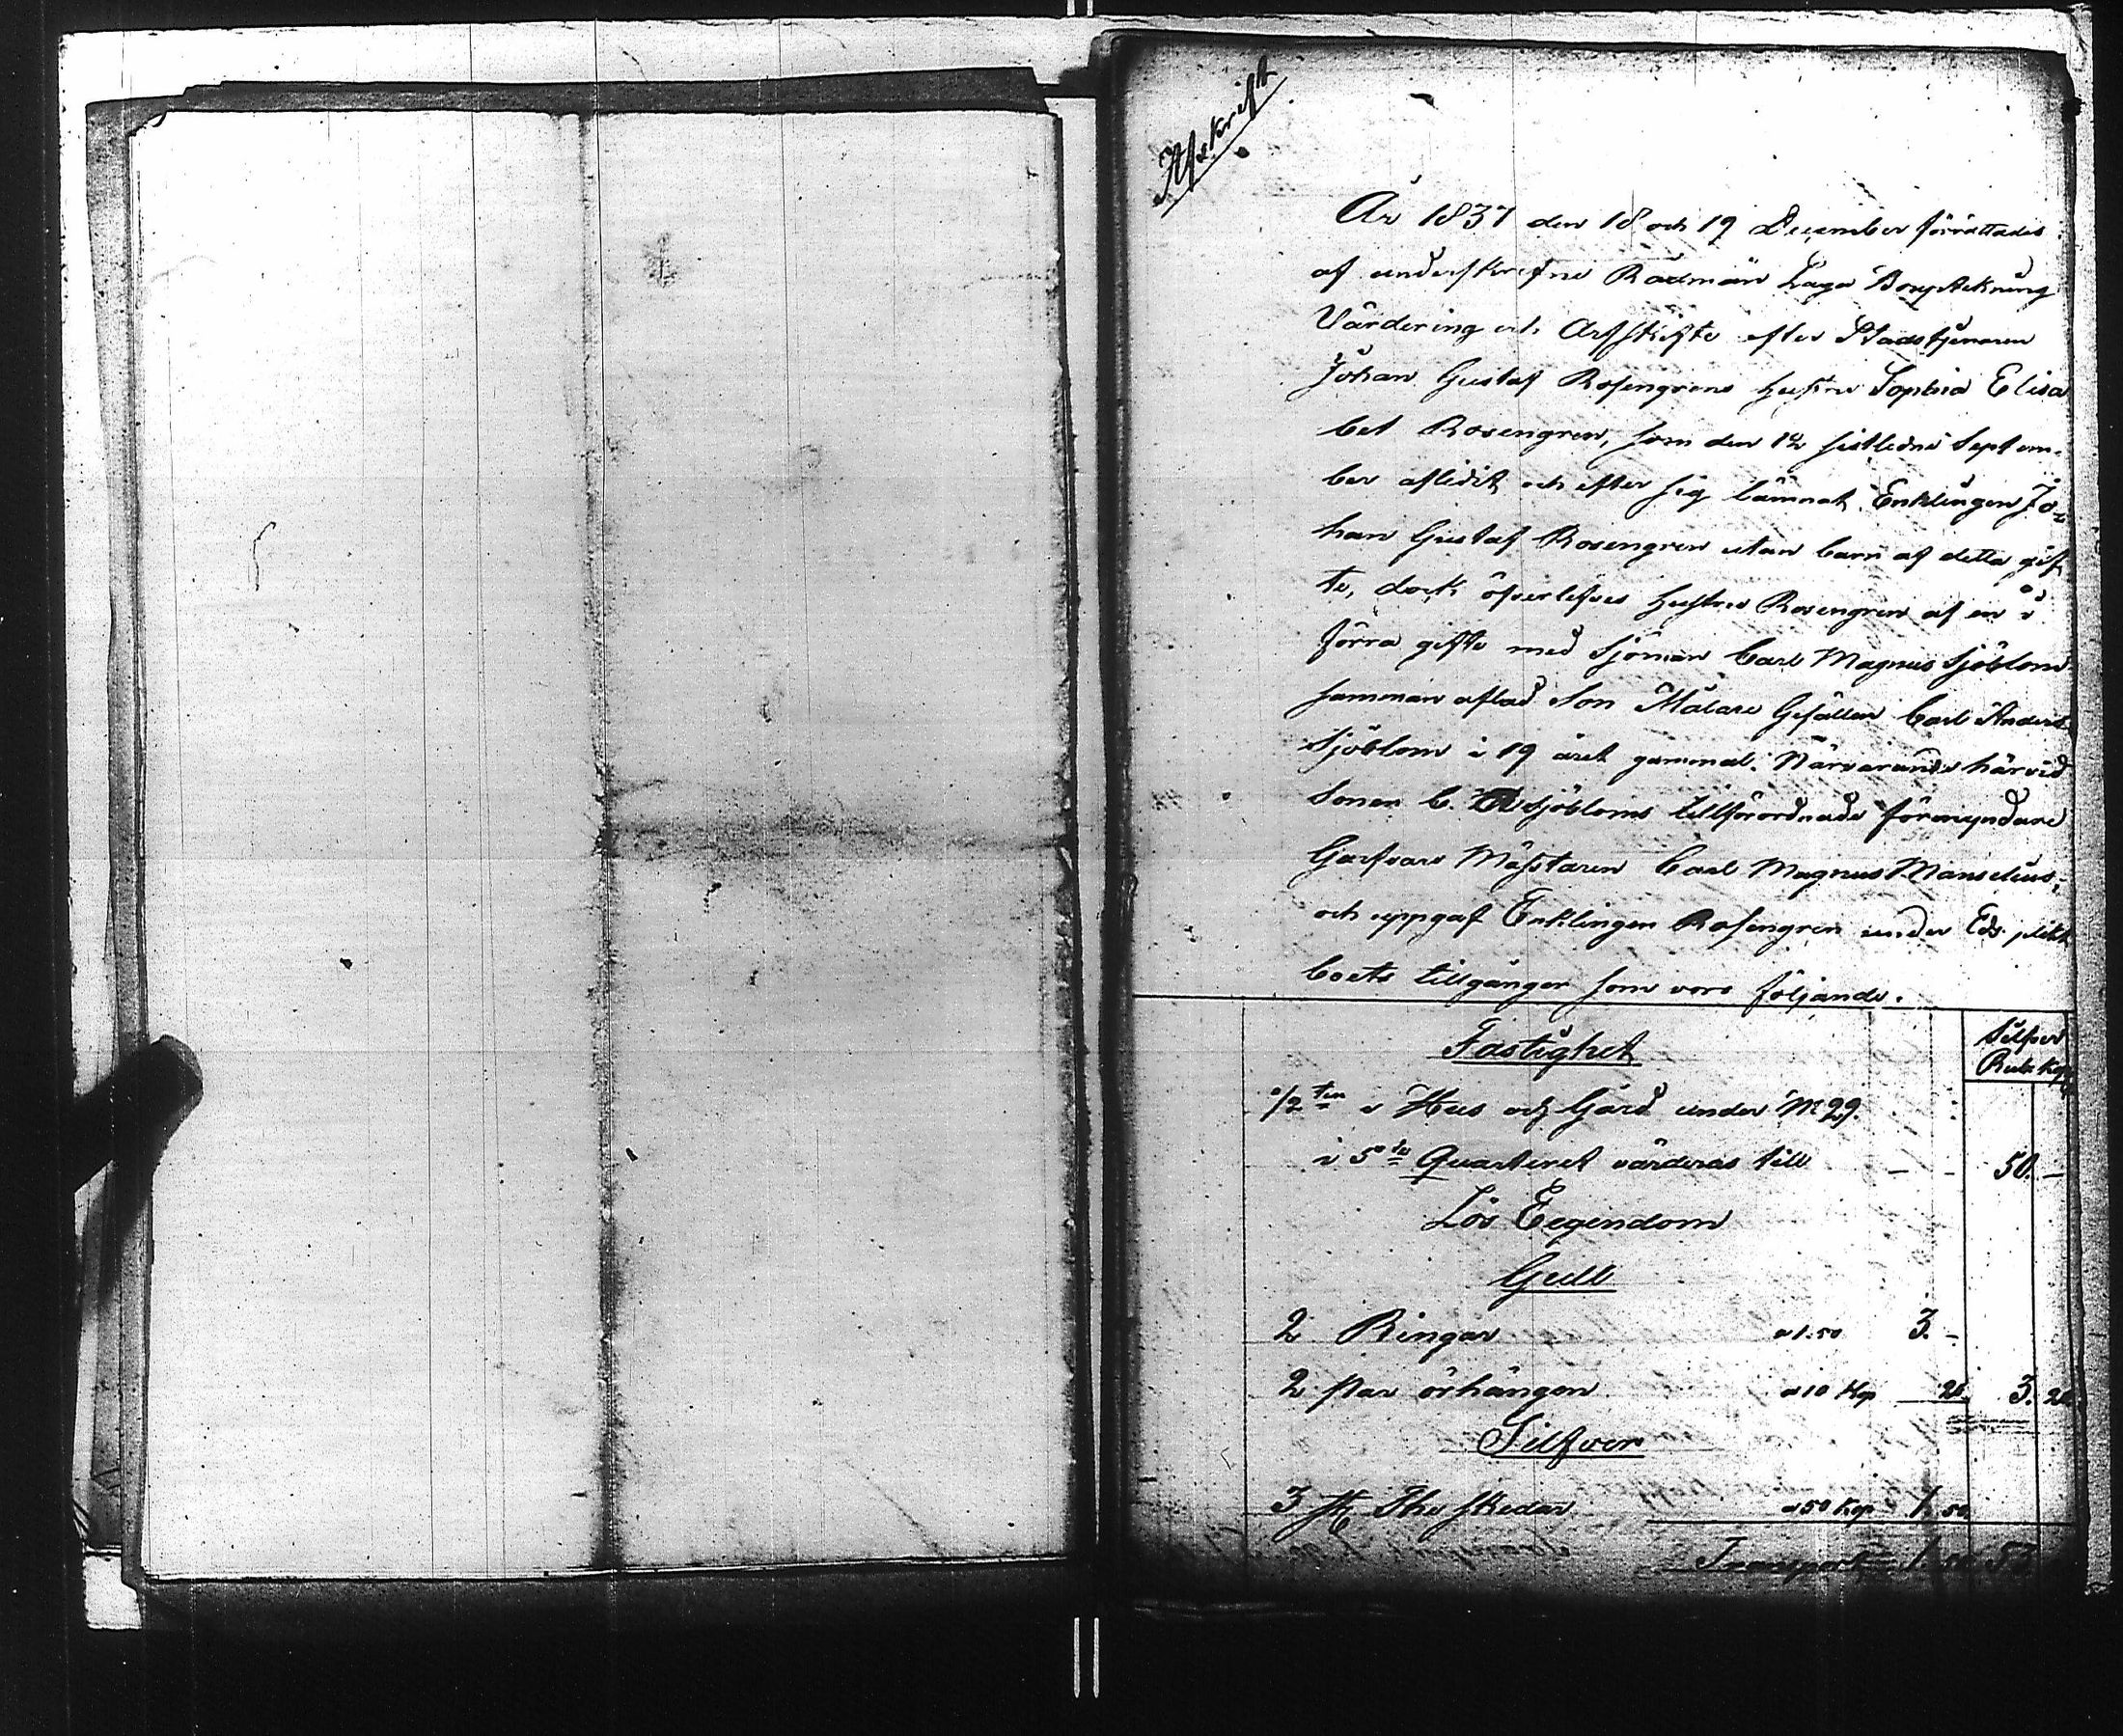 Afskrift
År 1837 den 18 och 19 December förrättades
af underskrefne Rådmän Laga Boupteckning
Värdering och Arfskifte efter Stadstjenaren
Johan Gustaf Rosengrens hustru Sophia Elisa
bet Rosengren, som den 12 sistledne Septem-
ber aflidit och efter sig lämnat Enklingen Jo-
han Gustaf Rosengren utan barn af detta gif
te, dock öfverlefves hustru Rosengren af en i
förra gifte med Sjöman Carl Magnus Sjöblom
samman aflad Son Målare Gesällen Carl Anders
Sjöblom i 19 året gammal. Närvarande härvid
Sonen C. Sjöbloms tillförordnade förmyndare
Garfvare Mästaren Carl Magnus Manselius;
och uppgaf Enklingen Rosengren under Eds plikt
boets tillgångar som voro följande.
Fastighet
Silfver
Rub. Kop
1/2 ten i Hus och Gård under No 29.
i 5te Quarteret värderas till - - 50. -
Lös Eegendom
Guld
2 Ringar a 1.50 3. -
2 par örhängen a 10 Kop 20. 3. 20
Silfver
3 st The skedar a 50 Kop 1. 50
Transport 1. 50 53